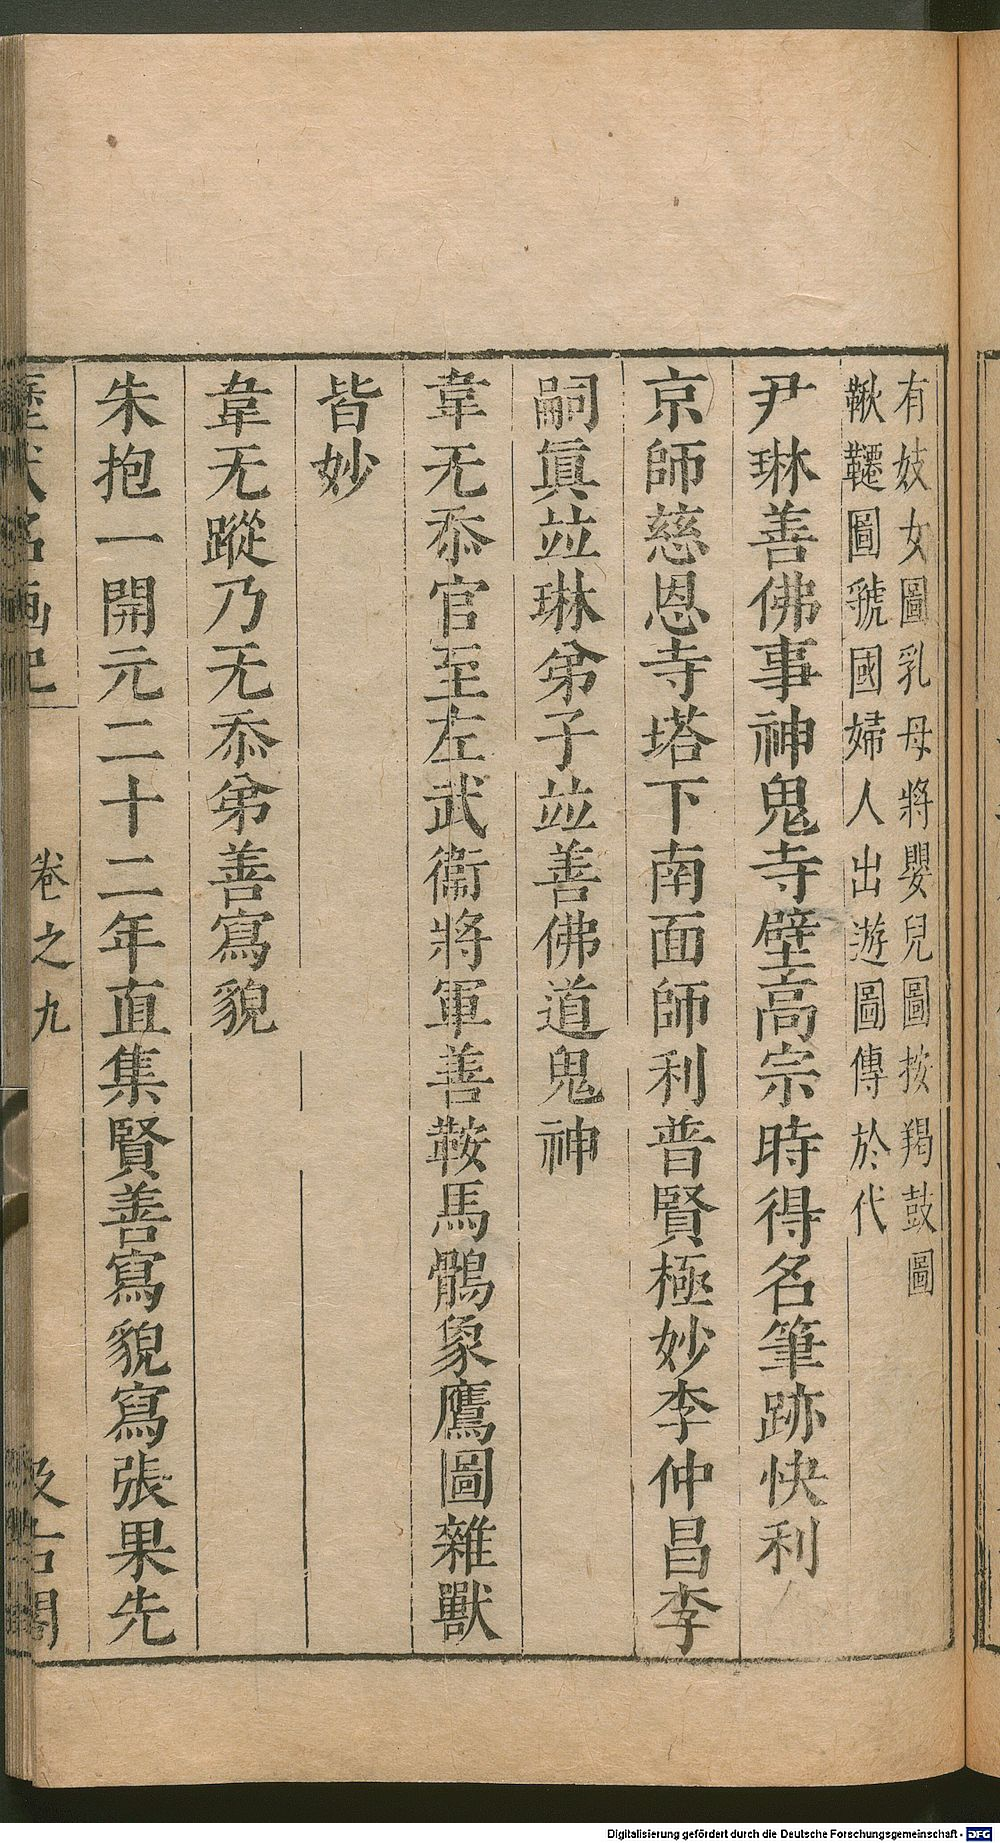 有妓女圖乳母將嬰兒圖按羯鼓圖
鞦韆圖虢國婦人出遊圖傳於代
尹琳善佛事神鬼寺壁高宗時得名筆跡快利
京師慈恩寺塔下南面師利普賢極妙李仲昌李
嗣眞竝琳弟子竝善佛道鬼神
韋无忝官至左武衞將軍善鞍馬鶻象鷹圖雜獸
皆妙
韋无蹤乃无忝弟善寫貌
朱抱一開元二十二年直集賢善寫貌寫張果先
歷代名画記
卷之九
汲古閣
Digitalisierung gefördert durch die Deutsche Forschungsgemeinschaft - DFG